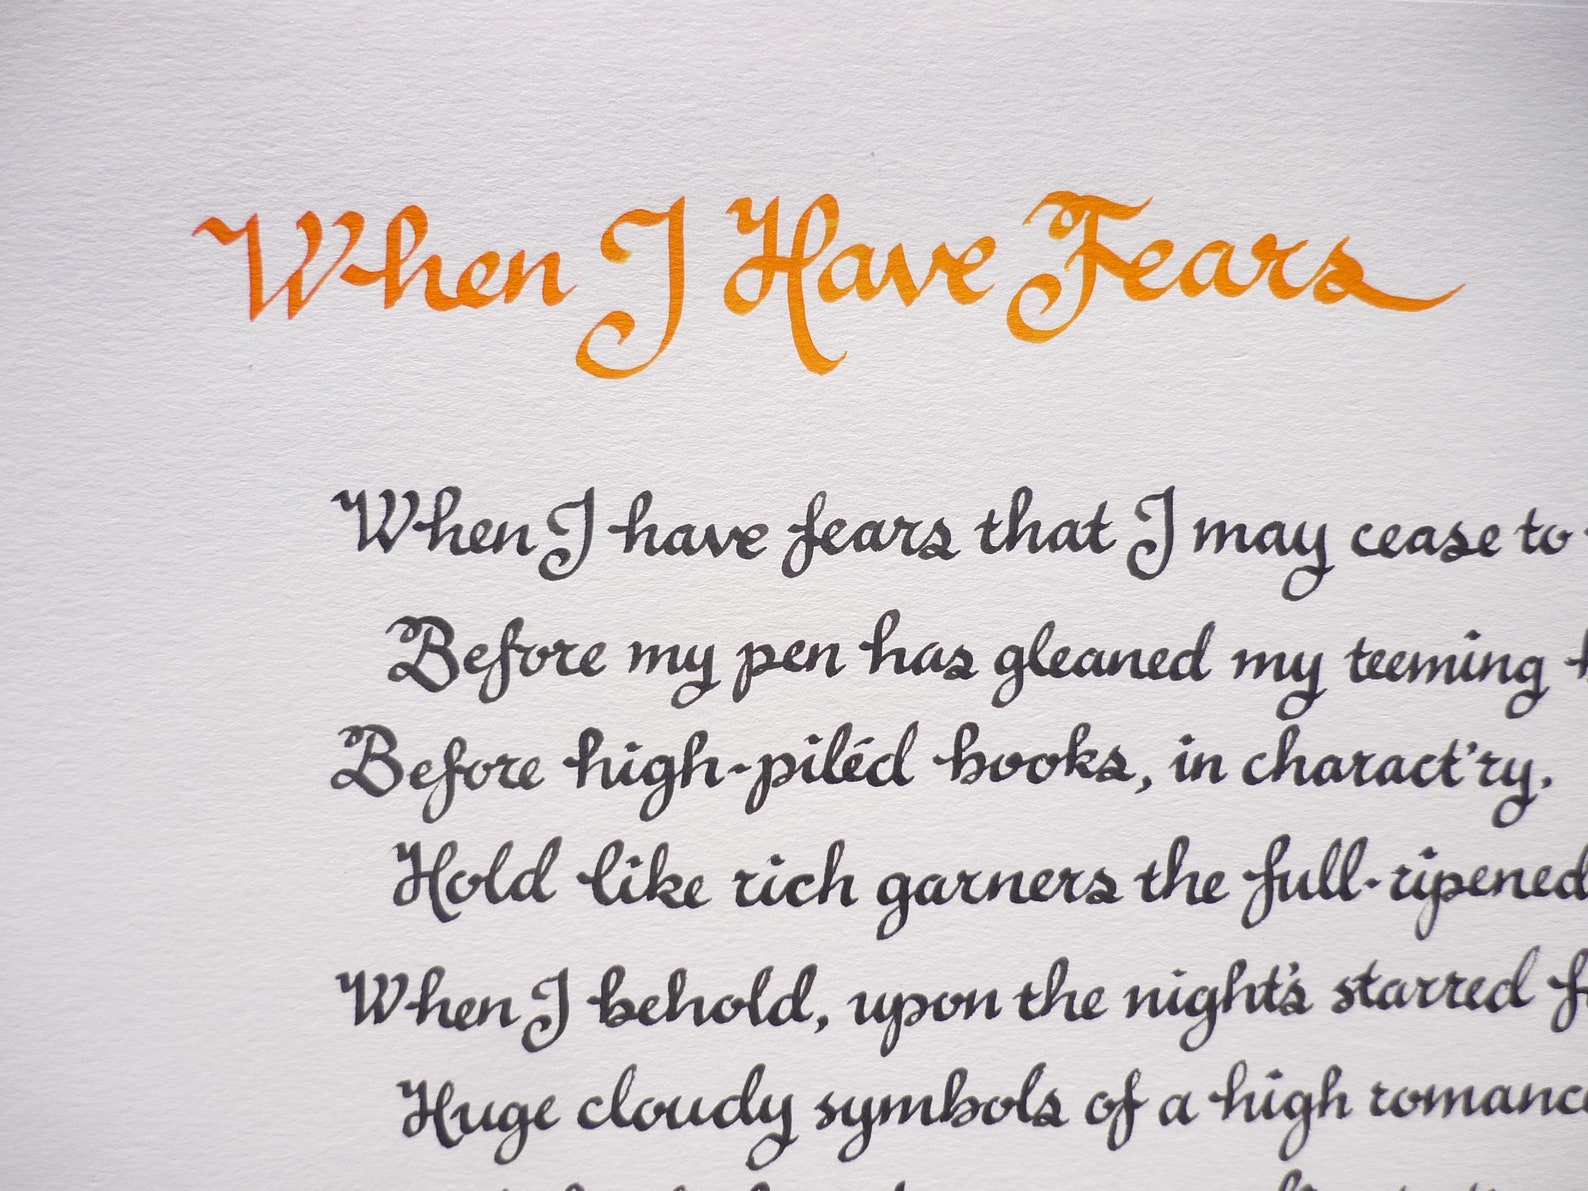 When I Have Fears
When I have fears that I may cease to
Before my pen has gleaned my teeming
Before high-piléd books, in charact'ry,
Hold like rich garners the full-ripened
When I behold, upon the night's starred
Huge cloudy symbols of a high romanc